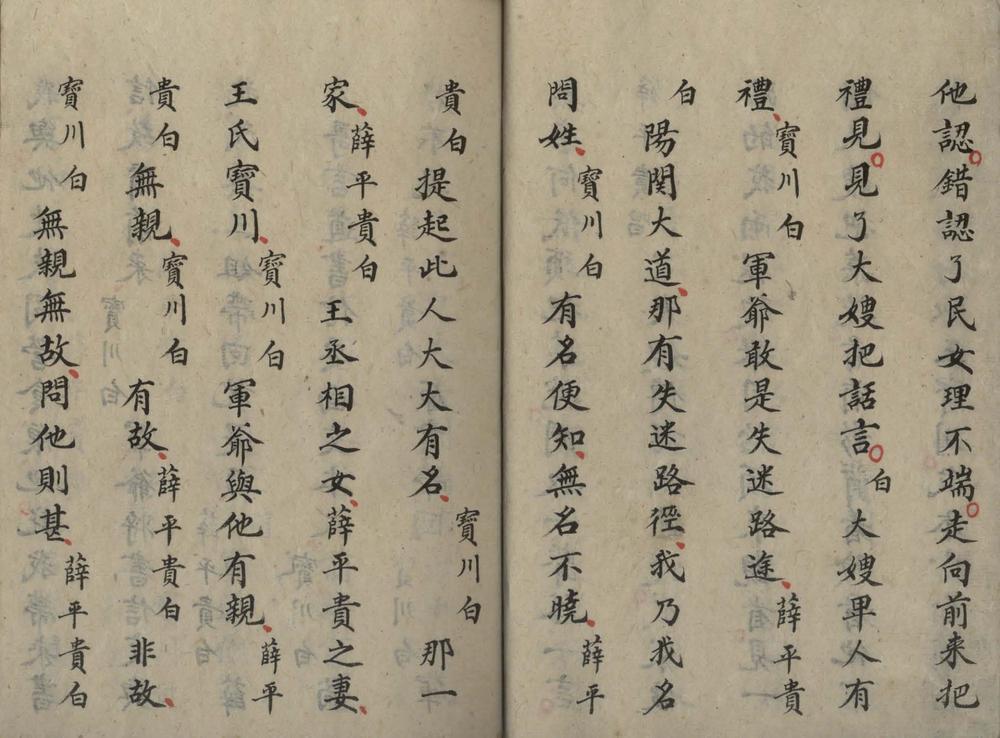 他認錯認了民女理不端走向前来把
禮見見了大嫂把話言白大嫂卑人有
禮寶川白軍爺敢是失迷路途薛平貴
白陽関大道那有失迷路徑我乃我名
問姓寶川白有名便知無名不曉薛平
貴白提起此人大大有名寶川白那一
家薛平貴白王丞相之女薛平貴之妻
王氏寶川寶川白軍爺與他有親薛平
貴白無親寶川白有故薛平貴白非故
寶川白無親無故問他則甚薛平貴白